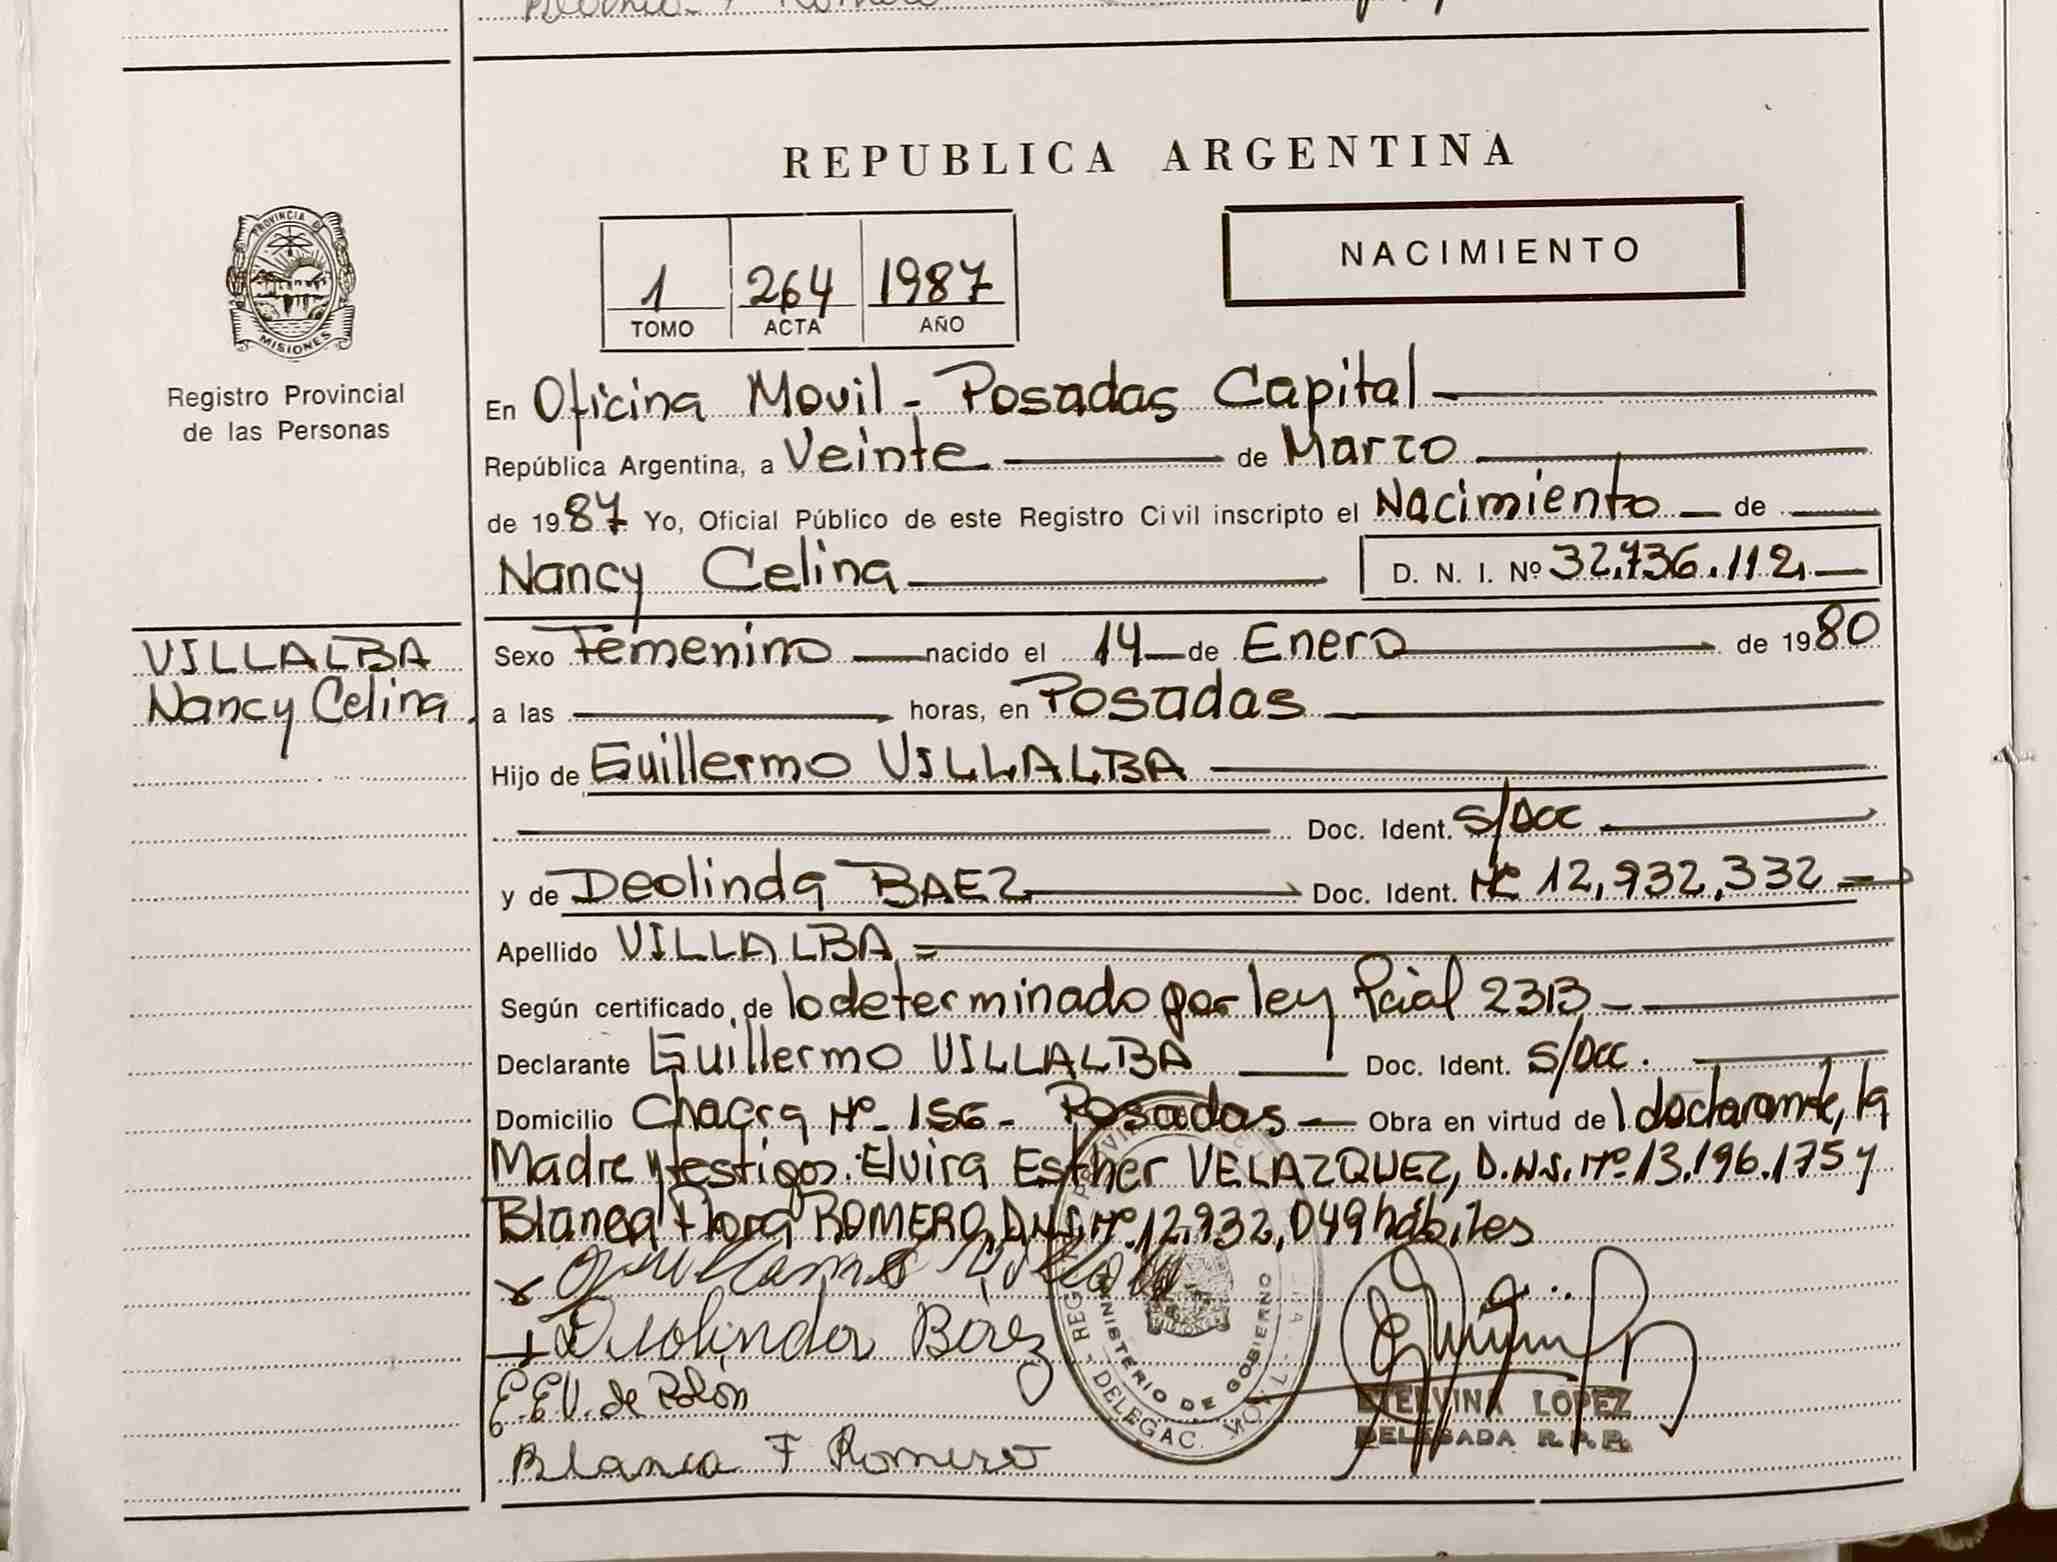 REPUBLICA ARGENTINA
NACIMIENTO
1 264 1987
TOMO ACTA AÑO
PROVINCIA D
MISIONES
Registro Provincial
de las Personas
En Oficina Movil - Posadas Capital
República Argentina, a Veinte de Marzo
de 1987 Yo, Oficial Público de este Registro Civil inscripto el Nacimiento de
Nancy Celina D. N. I. Nº 32.736.112
VILLALBA
Nancy Celina
Sexo Femenino nacido el 14 de Enero de 1980
a las horas, en Posadas
Hijo de Guillermo VILLALBA
Doc. Ident. S/Doc
y de Deolinda BAEZ Doc. Ident. Nº 12,932,332
Apellido VILLALBA
Según certificado de lo determinado por ley Pcial 2313
Declarante Guillermo VILLALBA Doc. Ident. S/Doc.
Domicilio Chacra Nº 156 - Posadas Obra en virtud de l declarante, la
Madre y testigos: Elvira Esther VELAZQUEZ, D.N.I. Nº 13.196.175 y
Blanca Flora ROMERO, D.N.I. Nº 12,932,049 hábiles
Deolinda Báez
E.E.V. de Rolón
Blanca F Romero
MINISTERIO DE GOBIERNO
DELEGAC. MOVIL
ETELVINA LOPEZ
DELEGADA R.P.P.